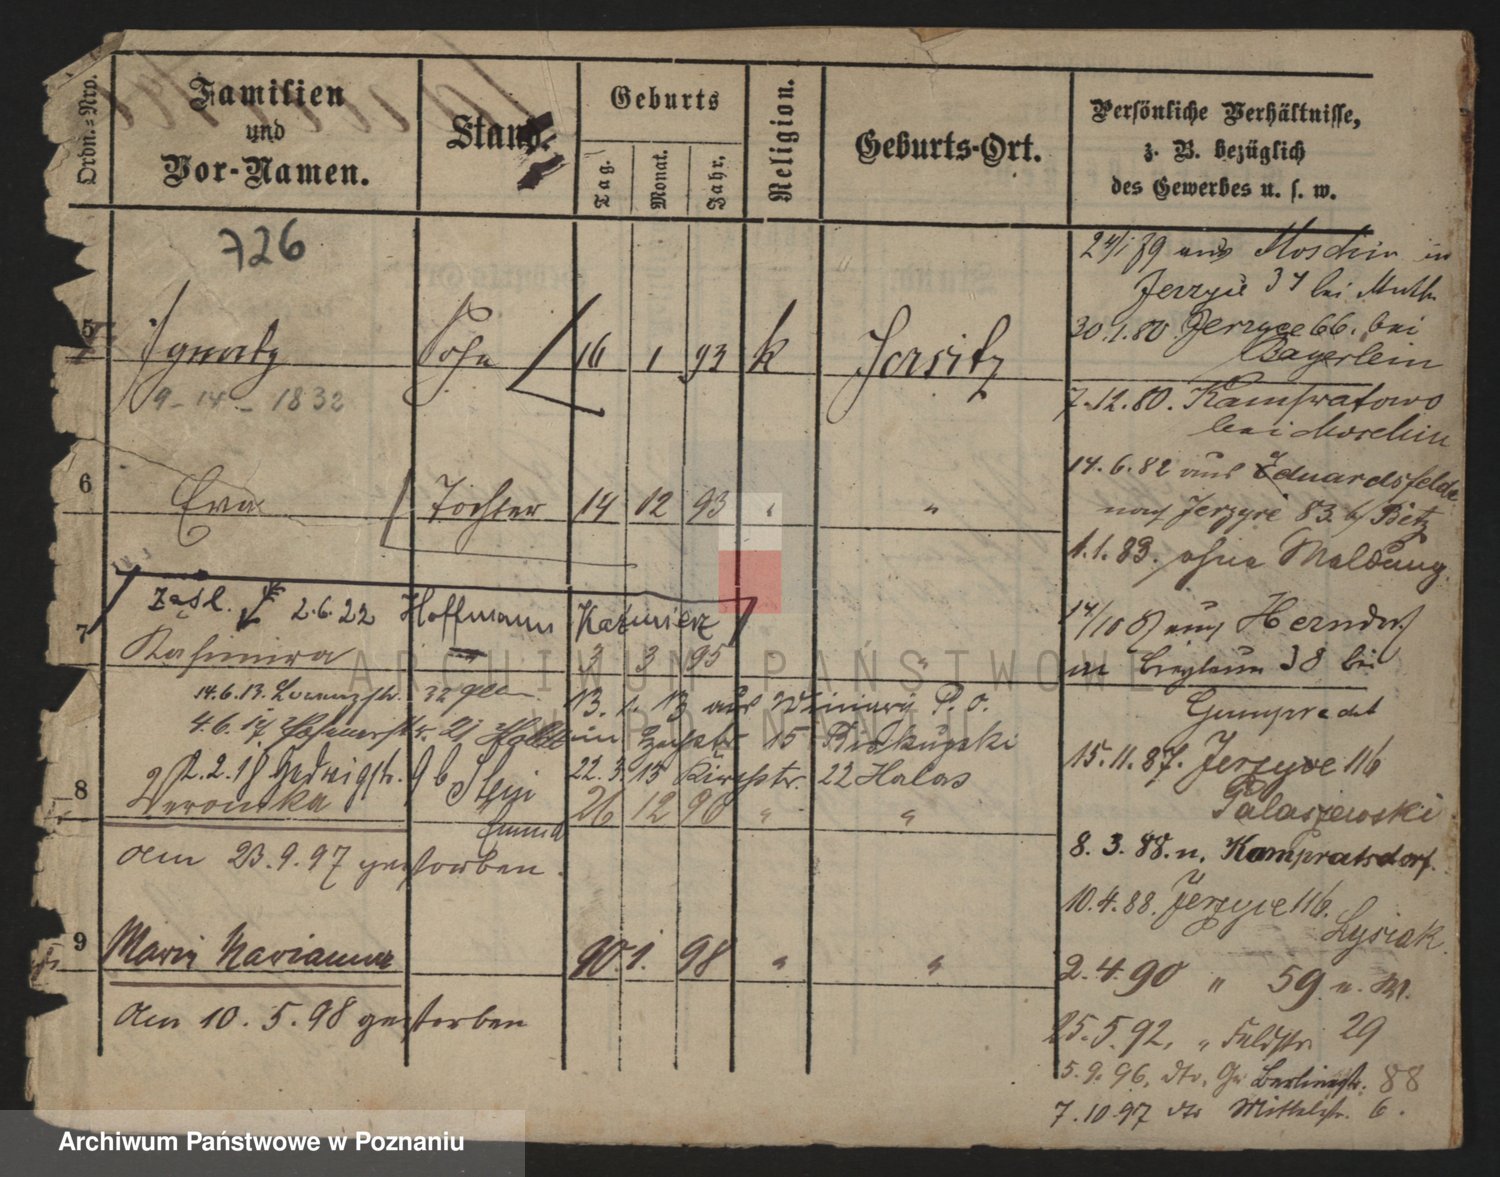 Ordn.-Nro.
Familien
und
Vor-Namen.
Stand.
Geburts
Tag.
Monat.
Jahr.
Religion.
Geburts-Ort.
Persönliche Verhältnisse,
z. B. bezüglich
des Gewerbes u. s. w.
726
5 Ignatz Sohn 16 1 93 k Jersitz
9 - 14 - 1832
6 Eva Tochter 14 12 93 " "
2.6.22 Hoffmann Kazimierz
7 Kasimira 3 3 95 "
14.6.13. 32
13. 1. 13 aus Winiary P. O.
4.6.17
15
2.2.18 Hedwigstr. 9b
22.3.15 Kirchstr. 22 Halas
8 Veronika 26 12 96 " "
am 23.9.97 gestorben.
9 Marianna 1. 98 " "
am 10.5.98 gestorben
24/1 79 aus Moschin in
Jerzyce 37 bei
30.1.80. Jerzyce 66. bei
Bayerlein
7.12.80.
bei Moschin
14.6.82 aus Eduardsfelde
nach Jerzyce 83. b/ Bietz
1.1.83. ohne Meldung.
14/10 aus
in 38 bei
Gumprecht
15.11.87. Jerzyce 116
Palaszewski
8.3.88. n. Kompratsdorf.
10.4.88. Jerzyce 116.
Lysiak
2.4.90 " 59
25.5.92. " Feldstr. 29
5.9.96. dto. Gr. Berlinerstr. 88
7.10.97 dto Mittelstr. 6.
ARCHIWUM PAŃSTWOWE
W POZNANIU
Archiwum Państwowe w Poznaniu